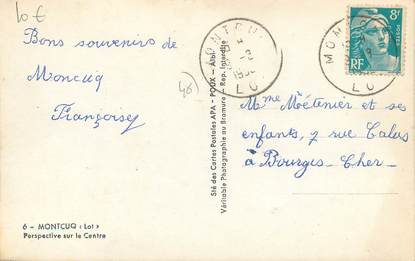 10€
Bons souvenirs de
Moncuq
Françoise
(46)
6 - MONTCUQ « Lot »
Perspective sur le Centre
Sté des Cartes Postales APA - POUX - Albi
Véritable Photographie au Bromure - Rep. Interdite
8F
RF
POSTES
LOT
Mme Méténier et ses
enfants, 7 rue Calvs
à Bourges - Cher -